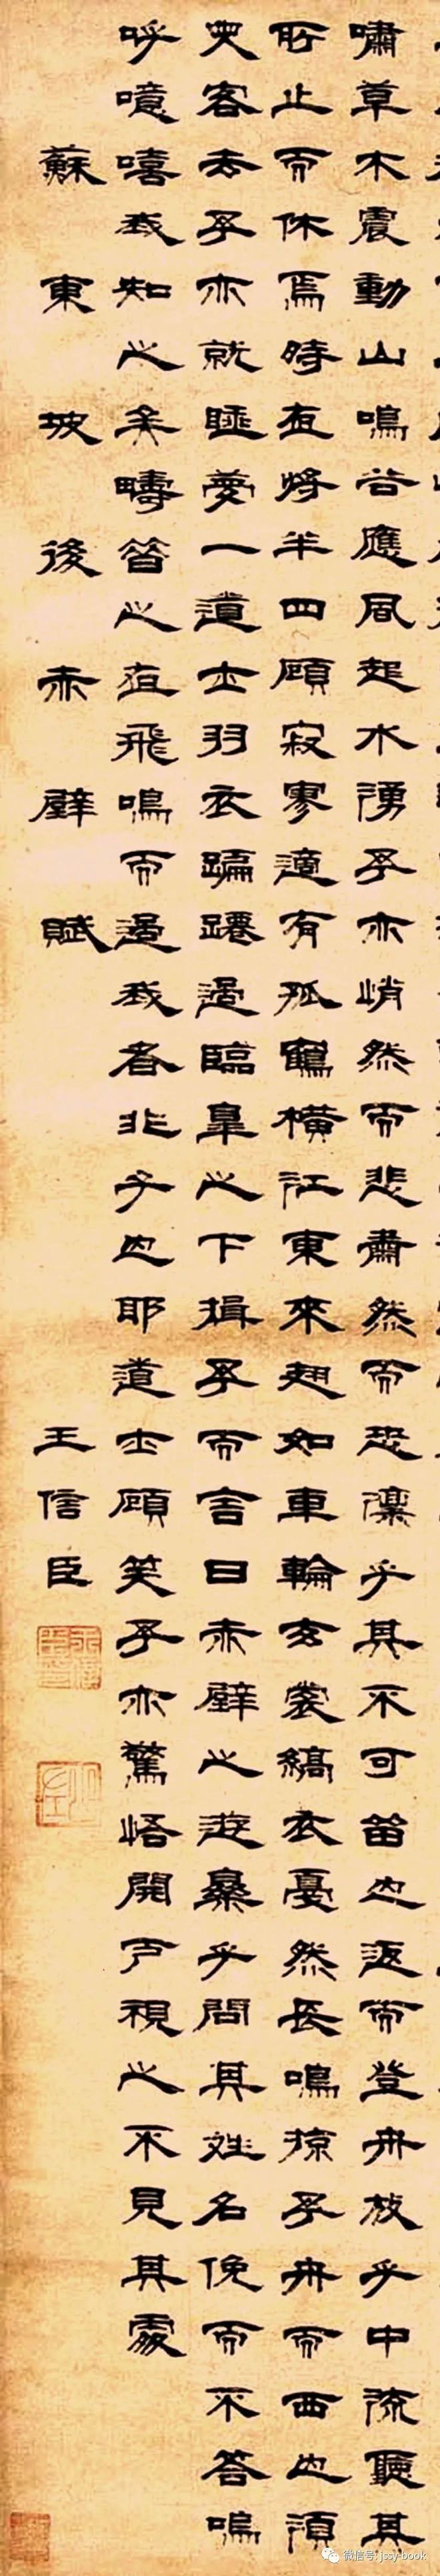 嘯草木震動山鳴谷應風起水湧予亦峭然而悲肅然而恐凜乎其不可留也返而登舟放乎中流聽其
所止而休焉時夜將半四顧寂寥適有孤鶴橫江東來翅如車輪玄裳縞衣戛然長鳴掠予舟而西也須
臾客去予亦就睡夢一道士羽衣蹁躚過臨皋之下揖予而言曰赤壁之遊樂乎問其姓名俛而不答嗚
呼噫嘻我知之矣疇昔之夜飛鳴而過我者非子也耶道士顧笑予亦驚悟開戶視之不見其處
蘇東坡後赤壁賦 王信臣
微信号: jssy-book